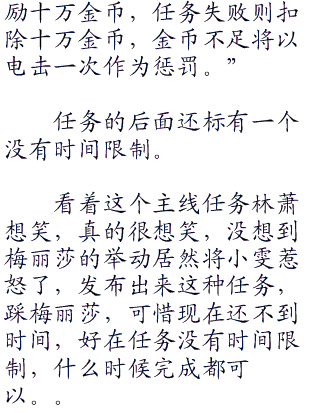 励十万金币，任务失败则扣
除十万金币，金币不足将以
电击一次作为惩罚。”
任务的后面还标有一个
没有时间限制。
看着这个主线任务林萧
想笑，真的很想笑，没想到
梅丽莎的举动居然将小雯惹
怒了，发布出来这种任务，
踩梅丽莎，可惜现在还不到
时间，好在任务没有时间限
制，什么时候完成都可
以。。